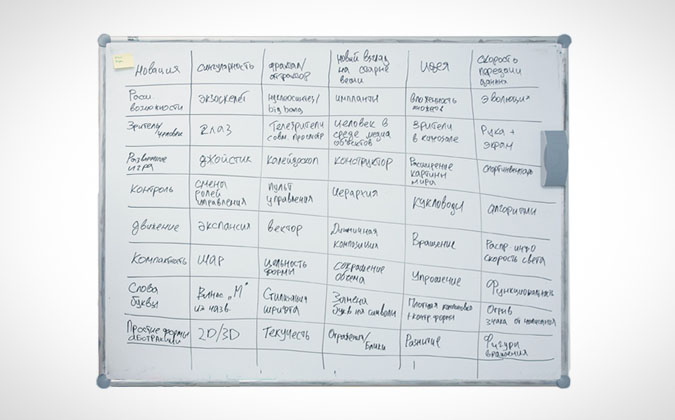 Новация
сингулярность
фрактал/
аттрактор
новый взгляд
на старые
вещи
идея
скорость
передачи
данных
возможности
экзоскелет
целостность/
big bang
импланты
вложенность
эволюция
Зрители/
человек
глаз
Телезрители
человек в
среде медиа
объектов
зрители
в кинозале
Рука +
экран
Развитие
игра
джойстик
калейдоскоп
конструктор
Расширение
картины
мира
контроль
смена
ролей
управления
пульт
управления
иерархия
кукловоды
алгоритмы
движение
экспансия
вектор
Динамичная
композиция
Вращение
Распр. инфо
скорость света
Компактность
шар
цельность
формы
Сокращение
объема
Упрощение
Функциональность
Слова
буквы
"М"
из назв.
Стилизация
шрифта
Замена
букв на символы
Плотная компоновка
+контр формы
Отрыв
знака от
Простые формы
абстракции
2D/3D
Текучесть
Отражения/
блики
Развитие
Фигуры
вращения